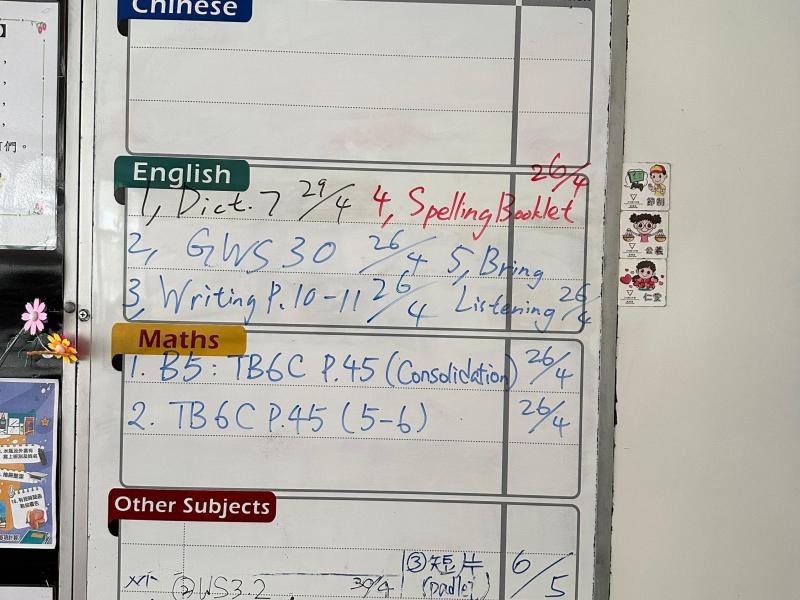 Chinese
們。
English
1, Dict. 7 29/4 4, Spelling Booklet 26/4
2, GWS 30 26/4 5, Bring
3, Writing P. 10-11 26/4 Listening 26/4
Maths
1. B5: TB6C P.45 (Consolidation) 26/4
2. TB6C P.45 (5-6) 26/4
Other Subjects
③短片 6/5
② WS3.2 30/4 (Padlet)
節制
公義
仁愛